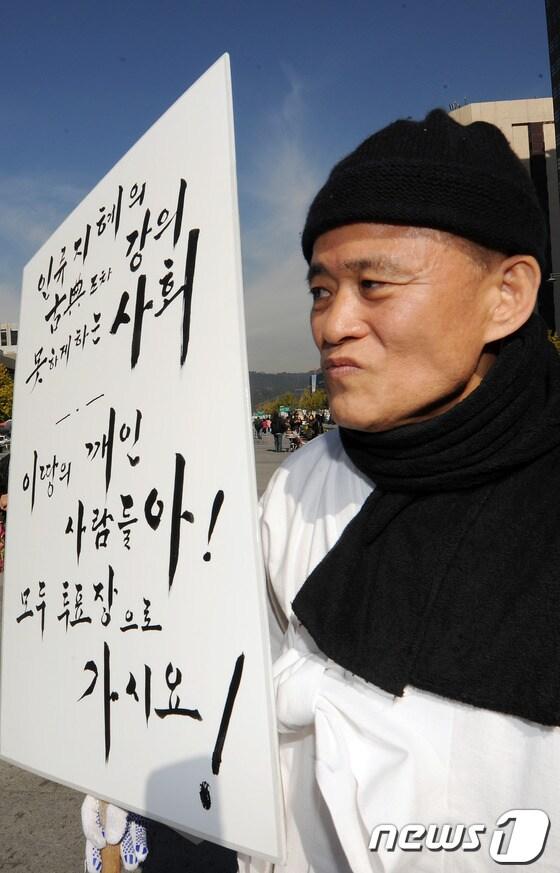 인류지혜의
古典 조차 강의
못하게하는 사회
이땅의 깨인
사람들아!
모두 투표장으로
가시요!
news1